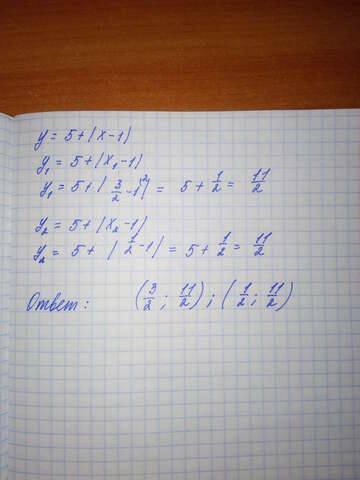 y = 5 + |x - 1|
y₁ = 5 + |x₁ - 1|
y₁ = 5 + | 3/2 - 1^2| = 5 + 1/2 = 11/2
y₂ = 5 + |x₂ - 1|
y₂ = 5 + | 1/2 - 1| = 5 + 1/2 = 11/2
Ответ: (3/2 ; 11/2) ; (1/2 ; 11/2)